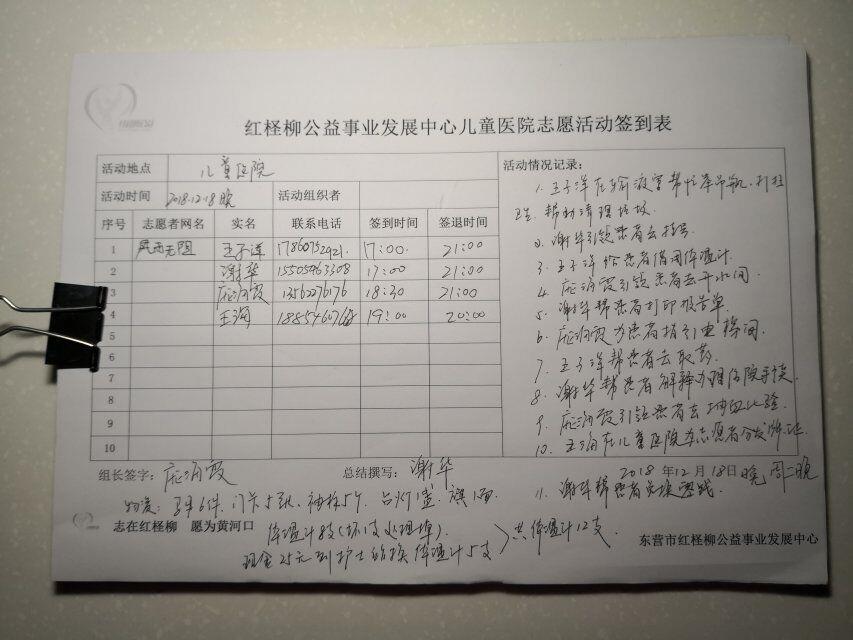 红柽柳公益事业发展中心儿童医院志愿活动签到表
活动地点 儿童医院
活动时间 2018.12.18晚 活动组织者
序号 志愿者网名 实名 联系电话 签到时间 签退时间
1 风雨无阻 王子洋 17860752921 17:00 21:00
2 谢华 15505463308 17:00 21:00
3 庞润霞 13562276176 18:30 21:00
4 王润 19:00 20:00
5
6
7
8
9
10
活动情况记录:
1. 王子洋在输液室帮忙举吊瓶,打扫
卫生 帮助清理垃圾
2. 谢华引领患者去挂号
3. 王子洋给患者借阅体温计.
4. 庞润霞引领患者去开水间
5. 谢华帮患者打印报告单
6. 庞润霞为患者指引电梯间.
7. 王子洋帮患者去取药
8. 谢华帮患者解释办理住院手续
9. 庞润霞引领患者去抽血化验.
10. 王润在儿童医院为志愿者分发
2018年12月18日晚 周二晚
11. 谢华帮患者兑换零钱
组长签字: 庞润霞 总结撰写: 谢华
物资: 马甲6件. 门卡5张. 袖标5个. 台灯1盏. 旗1面
志在红柽柳 愿为黄河口
体温计8支(坏1支处理掉)
现金25元到护士站换体温计5支
共体温计12支.
东营市红柽柳公益事业发展中心